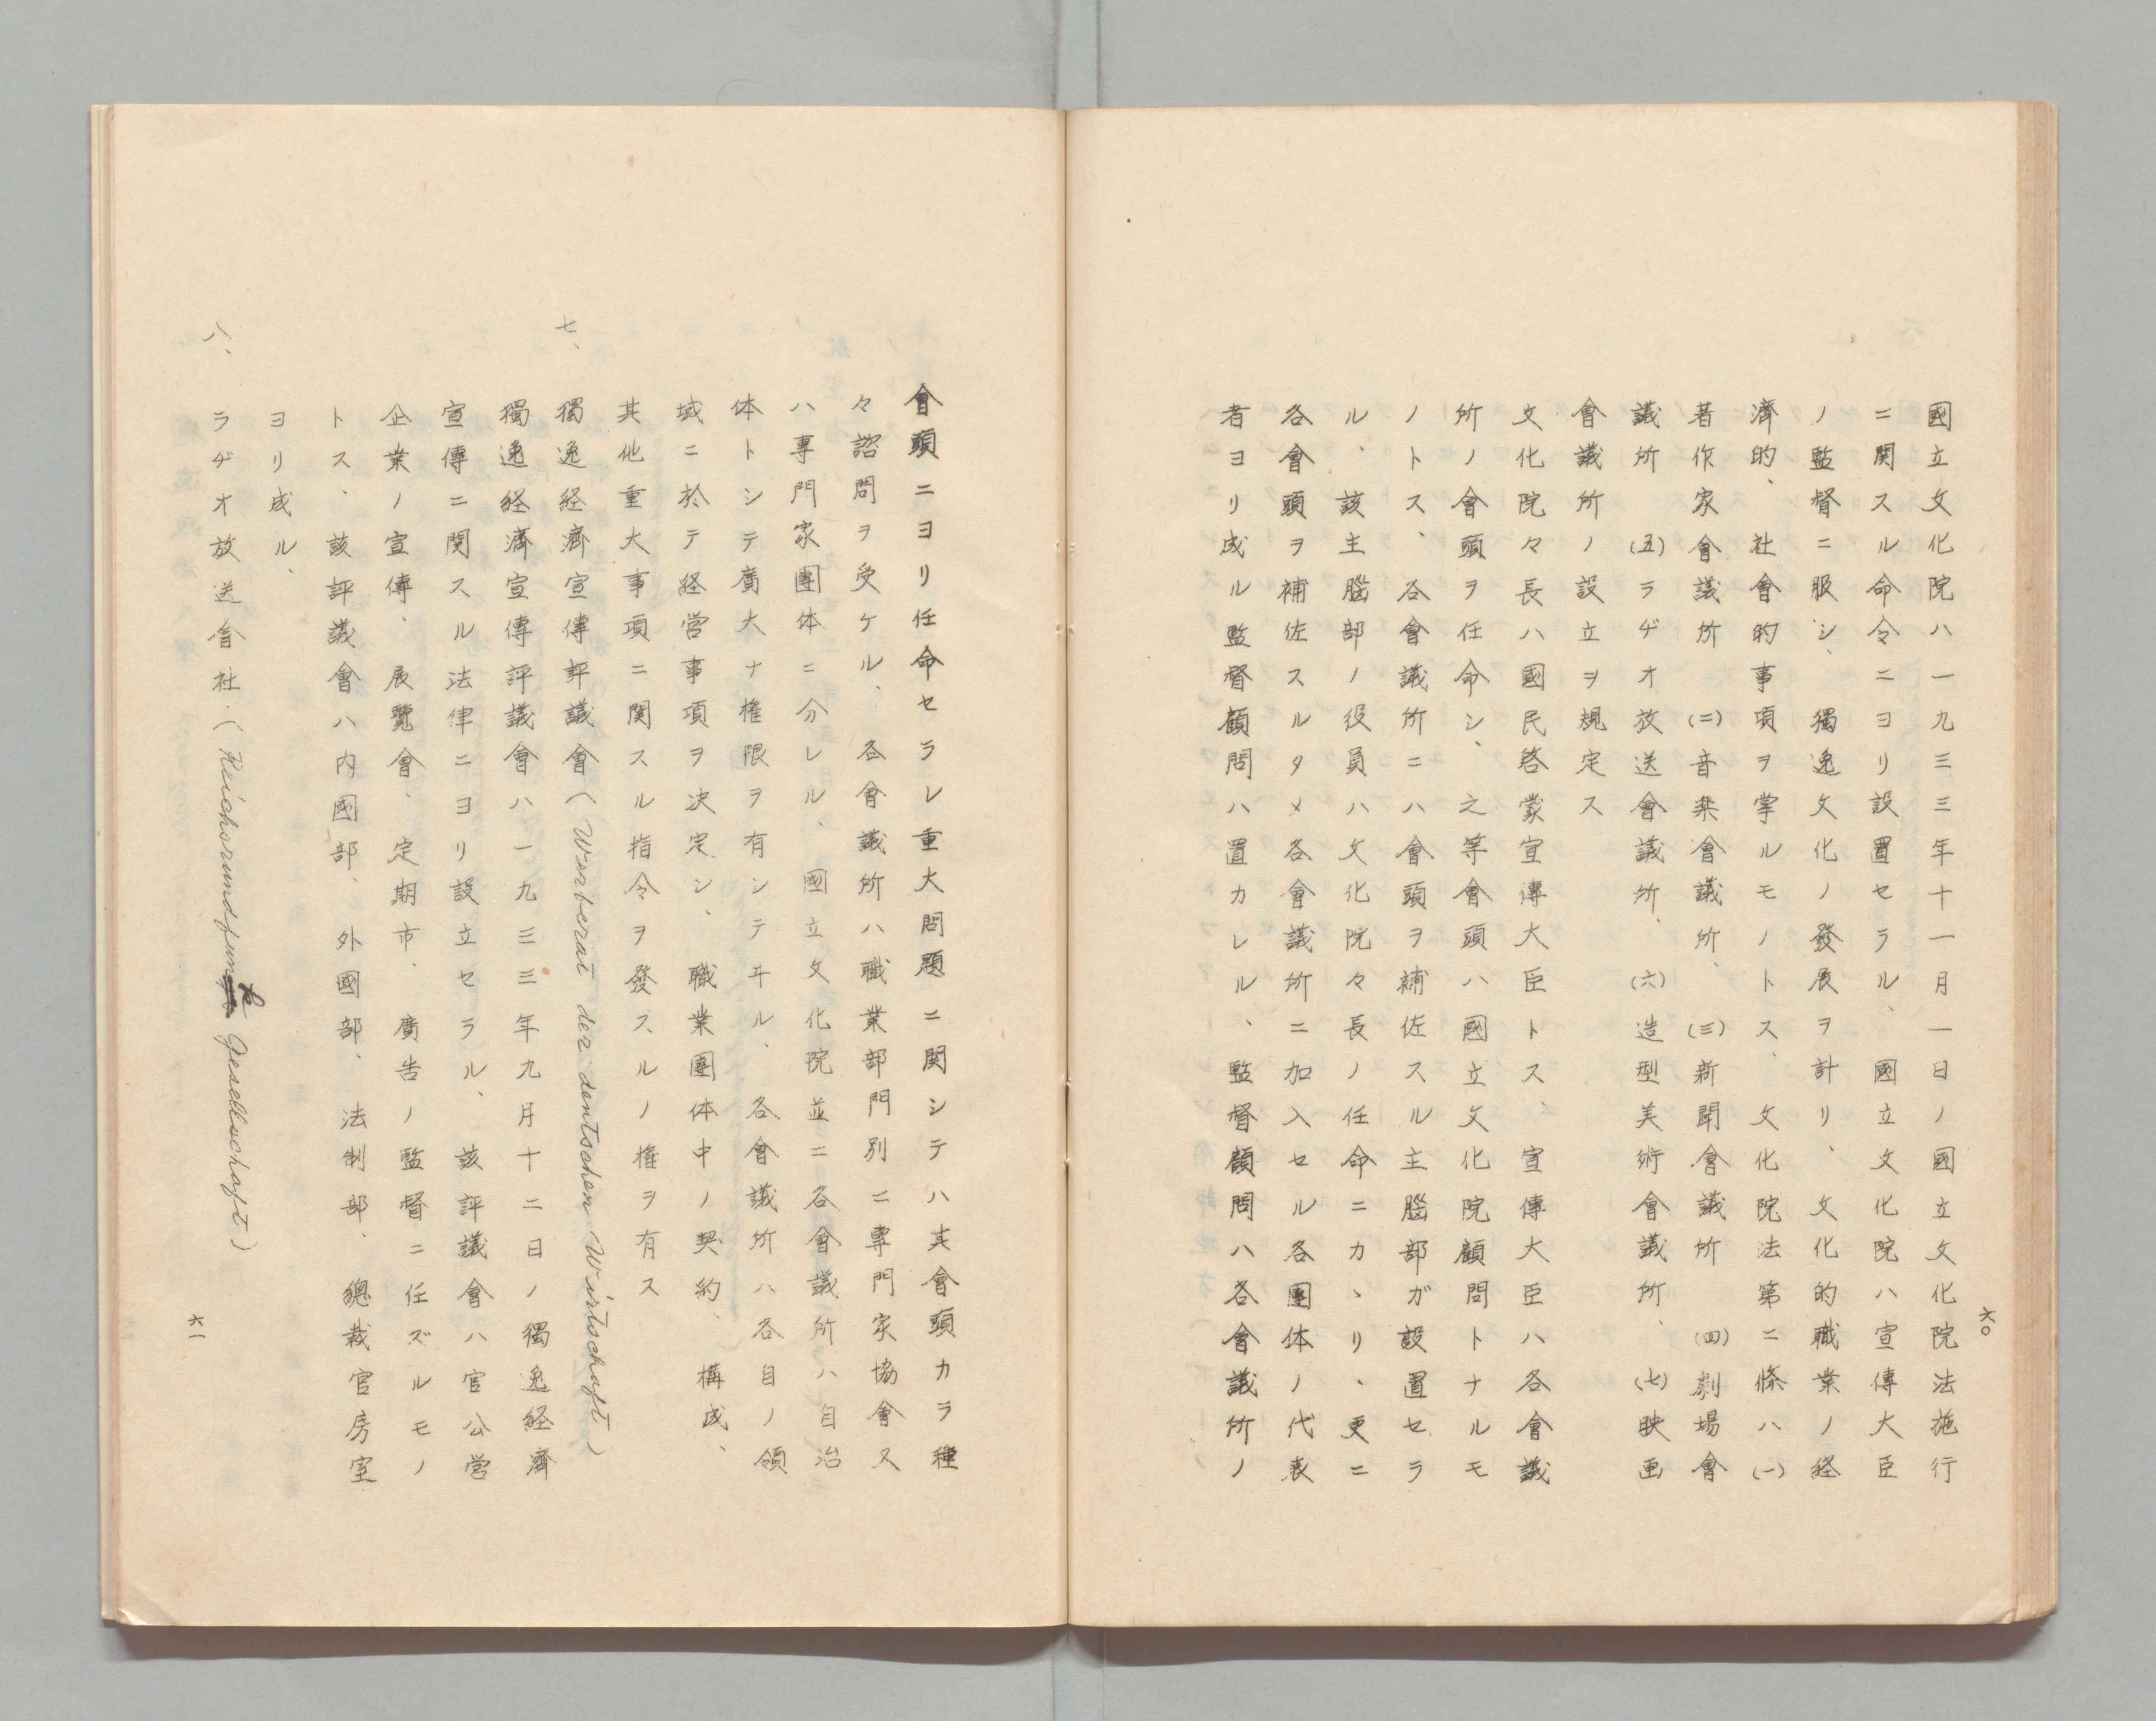 六〇
國立文化院ハ一九三三年十一月一日ノ國立文化院法施行
ニ関スル命令ニヨリ設置セラル、國立文化院ハ宣傳大臣
ノ監督ニ服シ、獨逸文化ノ發展ヲ計リ、文化的職業ノ経
濟的、社會的事項ヲ掌ルモノトス、文化院法第二條ハ(一)
著作家會議所(二)音楽會議所、(三)新聞會議所(四)劇場會
議所(五)ラヂオ放送會議所、(六)造型美術會議所、(七)映画
會議所ノ設立ヲ規定ス
文化院々長ハ國民啓蒙宣傳大臣トス、宣傳大臣ハ各會議
所ノ會頭ヲ任命シ、之等會頭ハ國立文化院顧問トナルモ
ノトス、各會議所ニハ會頭ヲ補佐スル主腦部ガ設置セラ
ル、該主腦部ノ役員ハ文化院々長ノ任命ニカヽリ、更ニ
各會頭ヲ補佐スルタメ各會議所ニ加入セル各團体ノ代表
者ヨリ成ル監督顧問ハ置カレル、監督顧問ハ各會議所ノ
會頭ニヨリ任命セラレ重大問題ニ関シテハ其會頭カラ種
々諮問ヲ受ケル、各會議所ハ職業部門別ニ專門家協會又
ハ專門家團体ニ分レル、國立文化院並ニ各會議所ハ自治
体トシテ廣大ナ権限ヲ有シテヰル、各會議所ハ各自ノ領
域ニ於テ経営事項ヲ决定シ、職業團体中ノ契約、構成、
其他重大事項ニ関スル指令ヲ發スルノ権ヲ有ス
七、獨逸経濟宣傳評議會(Werberat der deutschen Wirtschaft)
獨逸経濟宣傳評議會ハ一九三三年九月十二日ノ獨逸経濟
宣傳ニ関スル法律ニヨリ設立セラル、該評議會ハ官公営
企業ノ宣傳、展覽會、定期市、廣告ノ監督ニ任ズルモノ
トス、該評議會ハ内國部、外國部、法制部、總裁官房室
ヨリ成ル、
八、ラヂオ放送會社、(Reichsrundfunk Gesellschaft)
六一